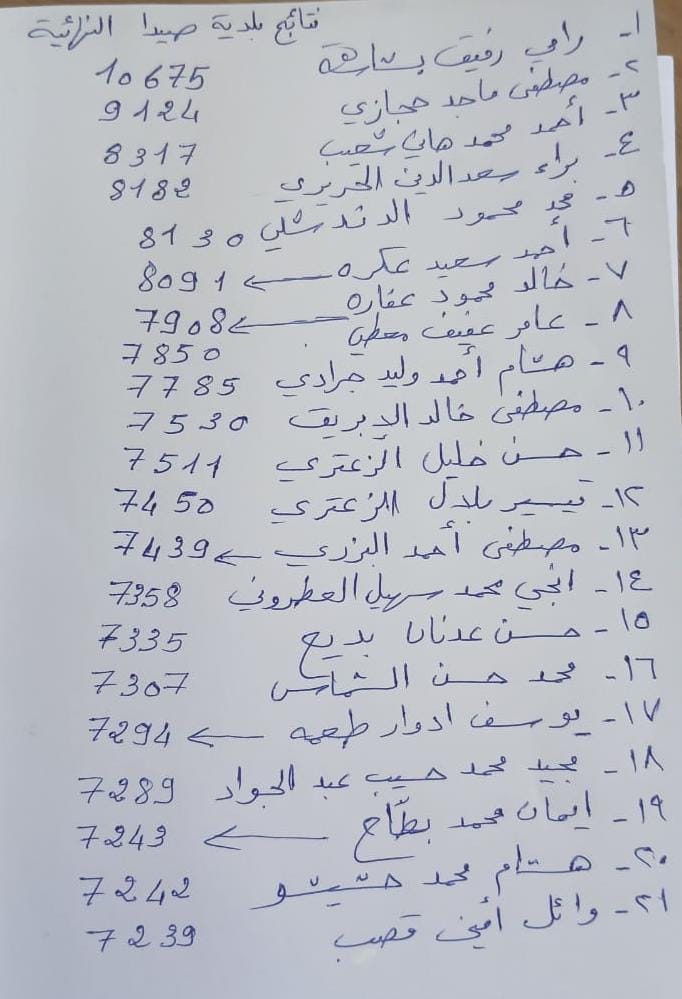 نتائج بلدية صيدا النهائية
١- رامي رفيق بشارة 10675
٢- مصطفى ماجد حجازي 9124
٣- أحمد محمد هاني شعيب 8317
٤- براء سعد الدين الحريري 8182
٥- محمد محمود الدندشلي 8130
٦- أحمد سعيد عكره ← 8091
٧- خالد محمود عفاره ← 7908
٨- عامر عفيف معطي 7850
٩- هشام أحمد وليد جرادي 7785
١٠- مصطفى خالد الإبريق 7530
١١- حسن خليل الزعتري 7511
١٢- تيسير بلال الزعتري 7450
١٣- مصطفى أحمد البزري ← 7439
١٤- انجي محمد سهيل العطروني 7358
١٥- حسن عدنان بديع 7335
١٦- محمد حسن الشماس 7307
١٧- يوسف ادوار طعمه ← 7294
١٨- مجيد محمد حسيب عبد الجواد 7289
١٩- ايمان محمد بطّاح ← 7243
٢٠- هشام محمد حشيشو 7242
٢١- وائل أمين قصب 7239